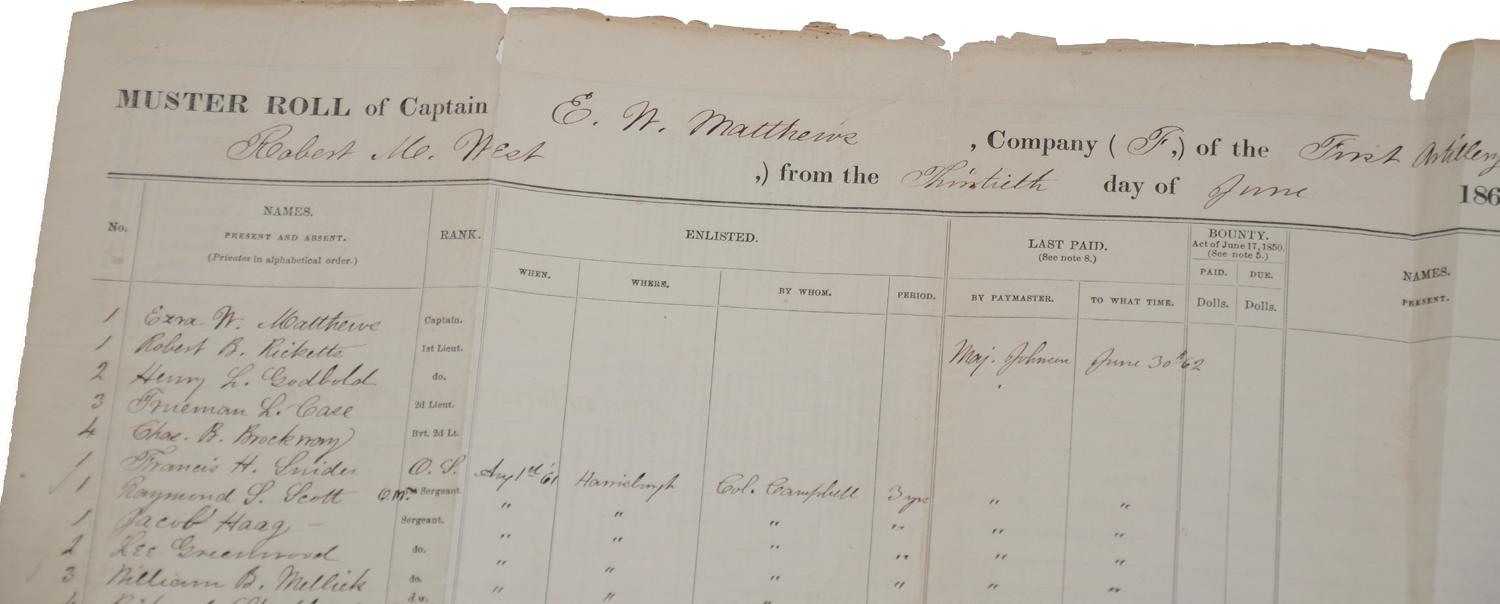 MUSTER ROLL of Captain E. W. Matthews, Company ( F,) of the First Artillery
Robert M. West ,) from the Thirtieth day of June 186
No. NAMES. PRESENT AND ABSENT. (Privates in alphabetical order.) RANK. ENLISTED. LAST PAID. (See note 8.) BOUNTY. Act of June 17, 1850. (See note 5.) NAMES. PRESENT.
WHEN. WHERE. BY WHOM. PERIOD. BY PAYMASTER. TO WHAT TIME. PAID. DUE.
Dolls. Dolls.
1 Ezra W. Matthews Captain.
1 Robert B. Ricketts 1st Lieut. Maj. Johnson June 30th 62
2 Henry L. Godbold do.
3 Trueman L. Case 2d Lieut.
4 Chas. B. Brockway Bvt. 2d Lt.
1 Francis H. Snider O. S. Aug 1st '61 Harrisburgh Col. Campbell 3 yrs " "
1 Raymond S. Scott Q.M. Sergeant. " " " " " "
1 Jacob Haag – Sergeant. " " " " " "
2 Lee Greenwood do. " " " " " "
3 William B. Mellick do. " " "
4 do.